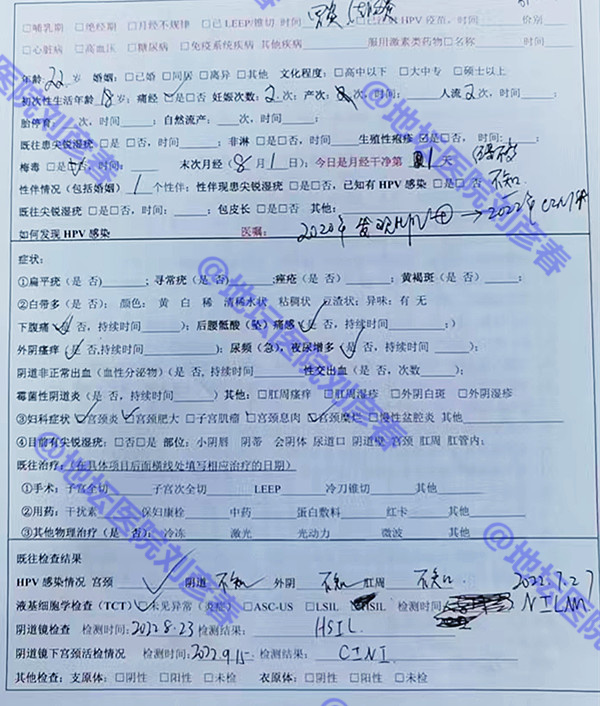 □哺乳期 □绝经期 □月经不规律 □已 LEEP/锥切 时间 HPV 疫苗，时间____ 价别____
□心脏病 □高血压 □糖尿病 □免疫系统疾病 其他疾病 服用激素类药物□名称____ 时间____
年龄 22 岁 婚姻：□已婚 □同居 □离异 □其他 文化程度：□高中以下 □大中专 □硕士以上
初次性生活年龄 18 岁；痛经 □是□否 妊娠次数：2 次；产次： 次，时间：____ 人流 2 次，时间：____；
胎停育____次，时间：____；自然流产：____次，时间：____；
既往患尖锐湿疣：□是 □否，时间：____；非淋 □是□否，时间____ 生殖性疱疹 □是□否， 时间：____；
梅毒 □是□否，时间：____ 末次月经（8 月 1 日）；今日是月经干净第 1 天
性伴情况（包括婚姻） 1 个性伴；性伴现患尖锐湿疣 □是□否，已知有 HPV 感染 □是□否 不知
既往尖锐湿疣 □是□否，时间：____；包皮长 □是□否 其他：
如何发现 HPV 感染 医嘱： 2020年发现HPV⊕→2022年CIN1
症状：
①扁平疣（是 否）____；寻常疣（是 否）____；痤疮（是 否）____；黄褐斑（是 否）____；
②白带多（是 否）； 颜色： 黄 白 稀 清稀水状 粘稠状 豆渣状；异味：有 无
下腹痛（是 否，持续时间____）；后腰骶酸（坠）痛感（是 否，持续时间____；）
外阴瘙痒（是 否,持续时间____）；尿频（急），夜尿增多（是 否，持续时间 ____）；
阴道非正常出血（血性分泌物）（是 否, 持续时间____） 性交出血（是 否，次数____）；
霉菌性阴道炎（是 否，持续时间____）其他：□肛周瘙痒 □肛周湿疹 □外阴白斑 □外阴湿疹
③妇科症状 □宫颈炎 □宫颈肥大 □子宫肌瘤 □宫颈息肉 □宫颈糜烂 □慢性盆腔炎 其他____
④目前有尖锐湿疣：□否□是 部位：小阴唇 阴蒂 会阴体 尿道口 阴道壁 宫颈 肛周 肛管内；
既往治疗：（在具体项目后面横线处填写相应治疗的日期）
①手术：子宫全切____子宫次全切____LEEP____冷刀锥切____其他____
②用药：干扰素____保妇康栓____中药____蛋白敷料____红卡____其他____
③其他物理治疗（是 否）：冷冻 激光 光动力 微波 其他
既往检查结果
HPV 感染情况 宫颈 阴道 不知 外阴 不知 肛周 不知. 2022.7.27
液基细胞学检查（TCT）□未见异常（炎症）□ASC-US □LSIL □HSIL 检测时间 NILM
阴道镜检查 检测时间：2022.8.23 检测结果： HSIL.
阴道镜下宫颈活检情况 检测时间：2022.9.15. 检测结果： CIN1.
其他检查：支原体：□阴性 □阳性 □未检 衣原体：□阴性 □阳性 □未检
@地坛医院刘彦春
@地坛医院刘彦春
@地坛医院刘彦春
@地坛医院刘彦春